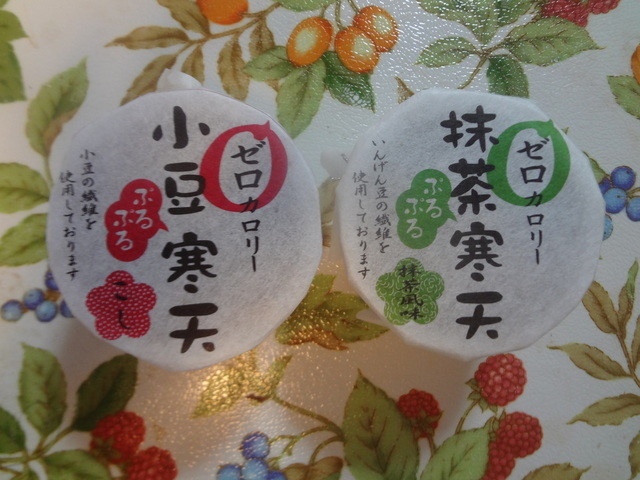 ゼロカロリー
小豆寒天
ぷる
ぷる
こし
小豆の繊維を
使用しております
ゼロカロリー
抹茶寒天
ぷる
ぷる
抹茶風味
いんげん豆の繊維を
使用しております